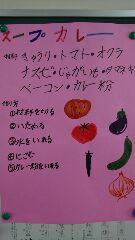 スープカレー
材料 きゅうり・トマト・オクラ
ナスビ・じゃがいも・タマネギ
ベーコン・カレー粉
作り方
①材料をきる
②いためる
③水を入れる
④にこむ
⑤カレー粉を入れる